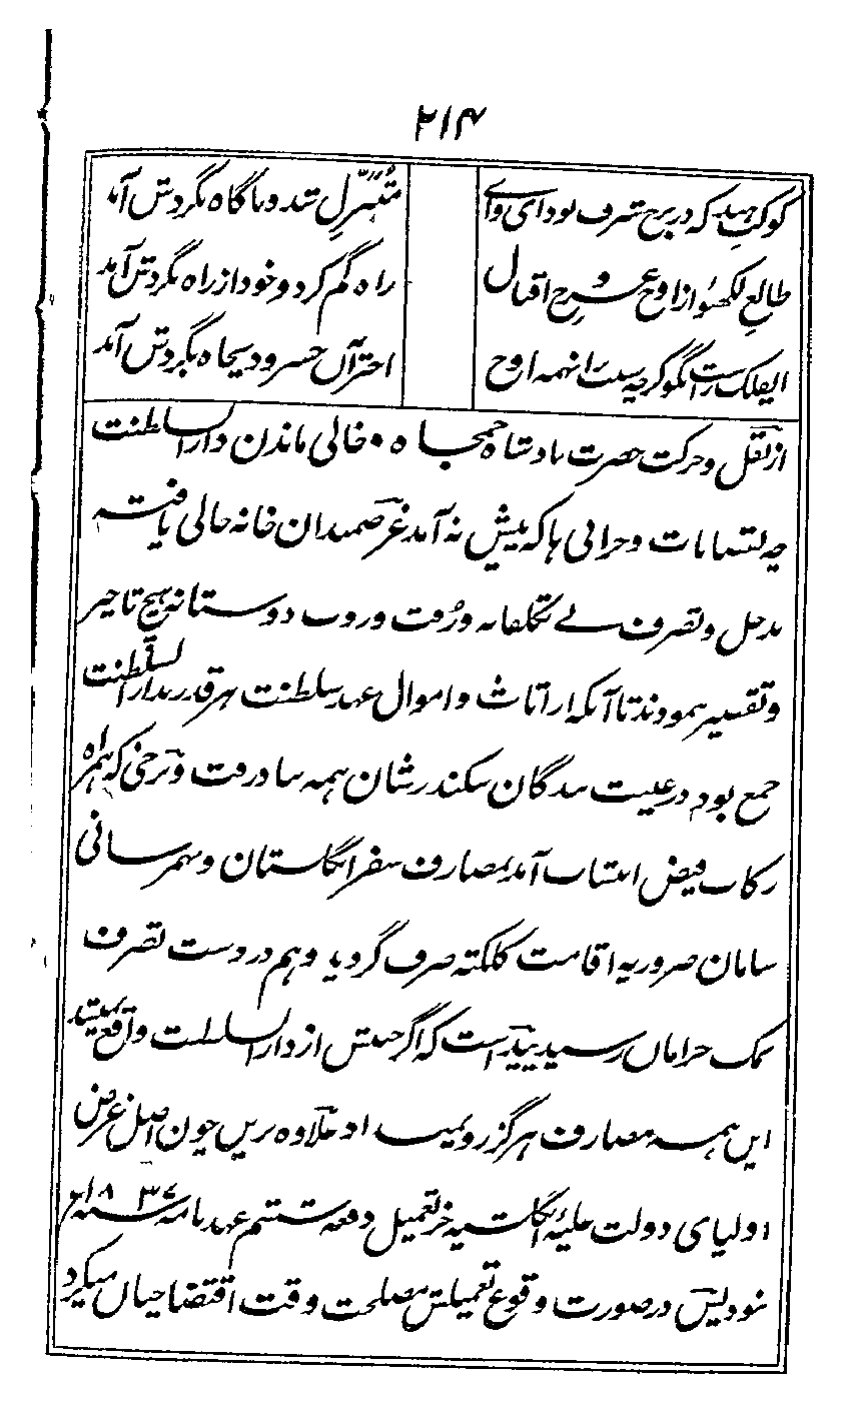 ۲۱۴
کوکب هند که در برج شرف بود ای وای
متنزل شد و ناگاه بگردش آمد
طالع لکھنؤ از اوج عروج اقبال
راه گم کرد و خود از راه بگردش آمد
ایفلک راست بگو گرچه سبب را نهمه اوج
اختر آن خسرو دیجاه بگردش آمد
از نقل و حرکت حضرت بادشاه جمجاه و خالی ماندن دارالسلطنت
چه نقصانات و خرابی ها که پیش نه آمد غرضمندان خانه خالی یافته
بدخل و تصرف بے تکلفانه و رُفت و روب دوستانه هیچ تاخیر
و تقصیر ننمودند تا آنکه از اثاث و اموال عهد سلطنت هر قدر بدارالسلطنت
جمع بود در غیبت بندگان سکندر شان همه بنا در رفت و برخی که همراه
رکاب فیض انتساب آمد بمصارف سفر انگلستان و بهمرسانی
سامان ضروریه اقامت کلکته صرف گردید و هم در دست تصرف
نمک حرامان رسید پیداست که اگر جنبش از دارالسلطنت واقع نمیشد
این همه مصارف هرگز رو نمیداد علاوه برین چون اصل غرض
اولیای دولت علیهٔ انگلشیه خبر تعمیل دفعه هشتم عهدنامه ۱۸۳۷ء
نبود پس در صورت وقوع تعمیلش مصلحت وقت اقتضا چنان میکرد